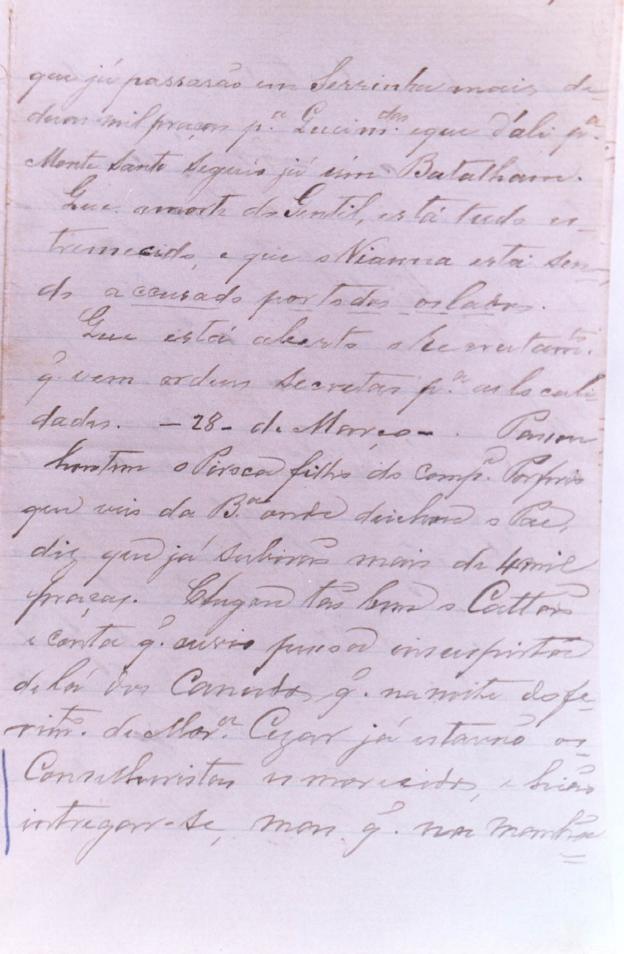 que já passarão em Serrinha mais de
duas mil praças p.ª Queim.das e que d'ali p.ª
Monte Santo seguio já um Batalham.
Que a morte do Gentil, está tudo es-
tremecido, e que o Vianna está sen-
do accusado por todos os lados.
Que está aberto o Recrutam.to
q. vem ordens secretas p.ª as locali-
dades. - 28 - de Março - . Passou
hontem o filho do comp.e Porfirio
que veio da B.ª onde deichou o Pae,
diz que já subirão mais de 4 mil
praças. Chegou tão bem o Cattão
e conta q. ouvio pessoa
de lá dos Canudos q. na noite do fe-
rim.to de Mor.ª Cezar já estavão os
Conselheiristas esmorecidos, e hião
intregar-se, mas q. na manhã